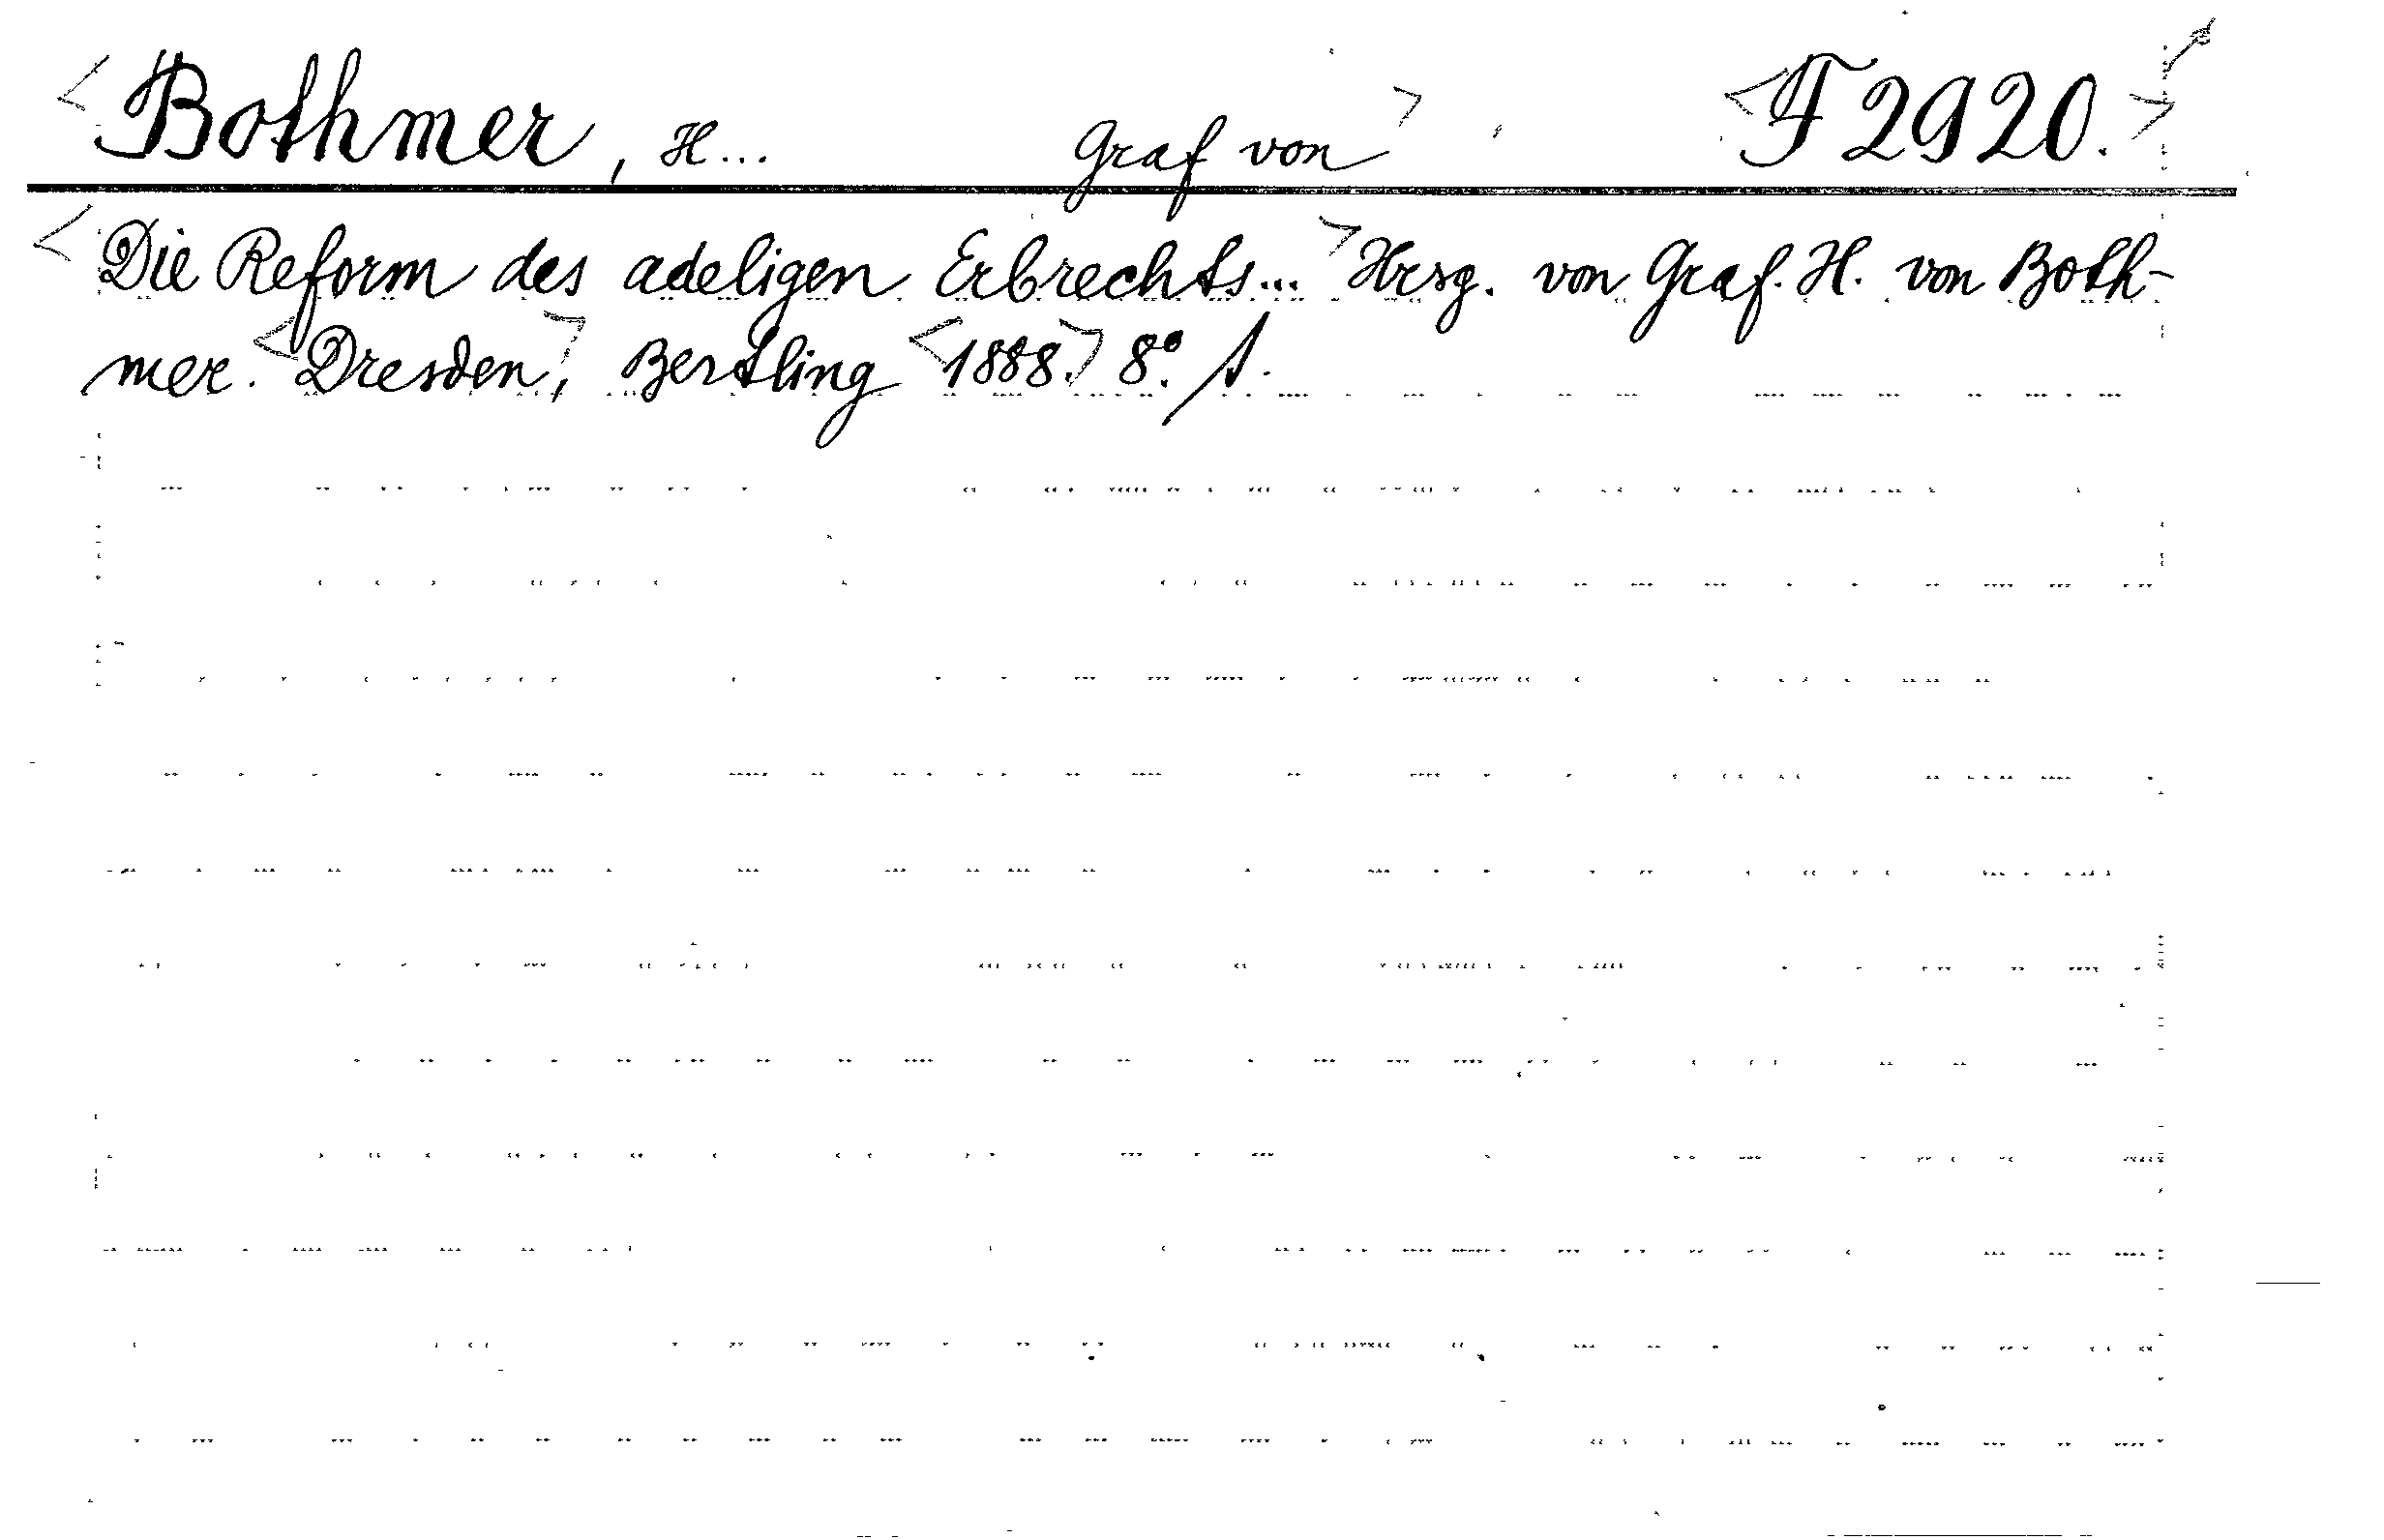 <Bothmer, H... Graf von> <F 2920.>
<Die Reform des adeligen Erbrechts...> Hrsg. von Graf. H. von Both-
mer. <Dresden,> Bertling <1888.> 8°.